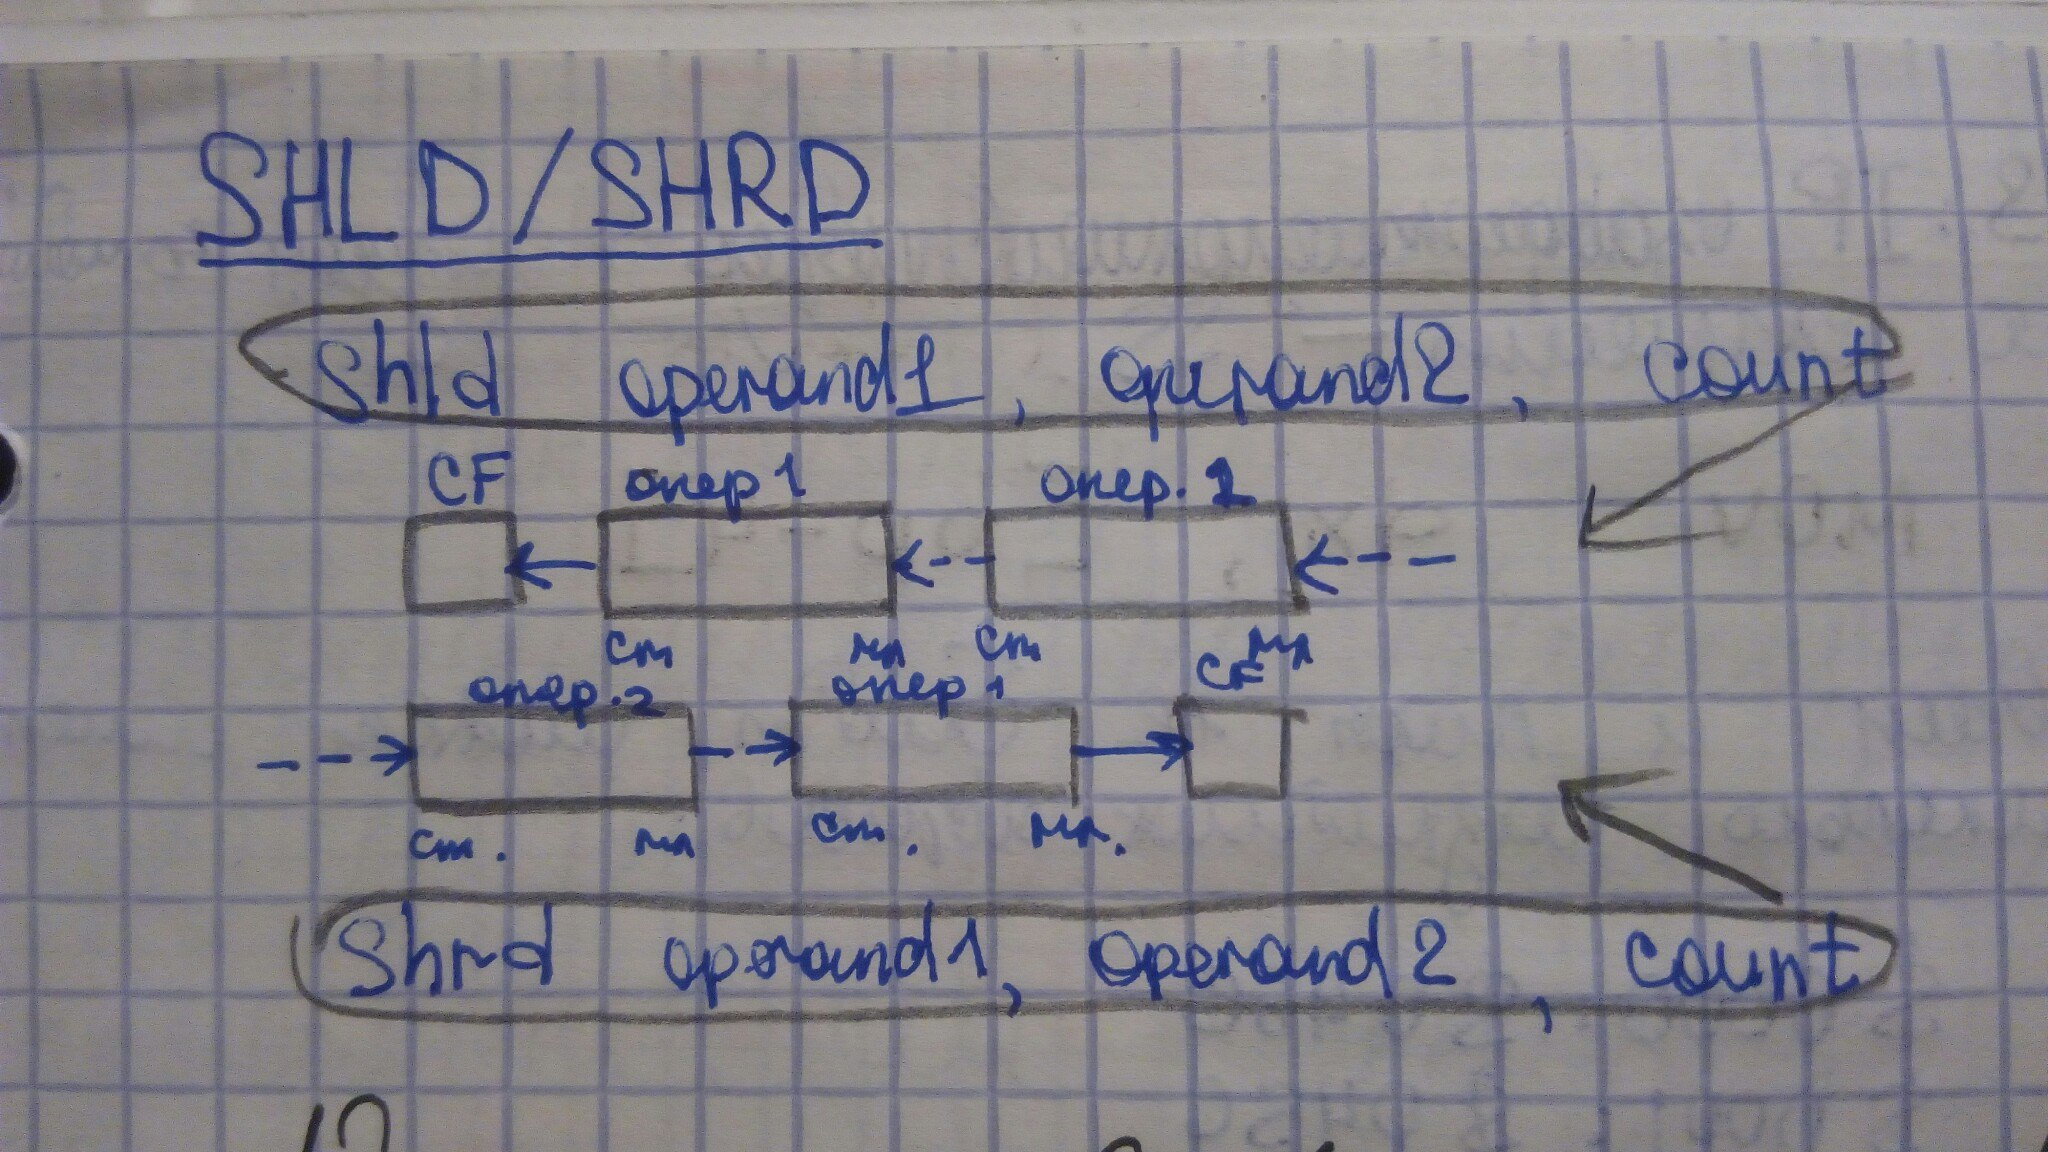 SHLD/SHRD
Shld operand1, operand2, count
CF опер1 опер.2
ст мл ст мл
опер.2 опер1 CF
ст. мл ст. мл.
Shrd operand1, operand2, count